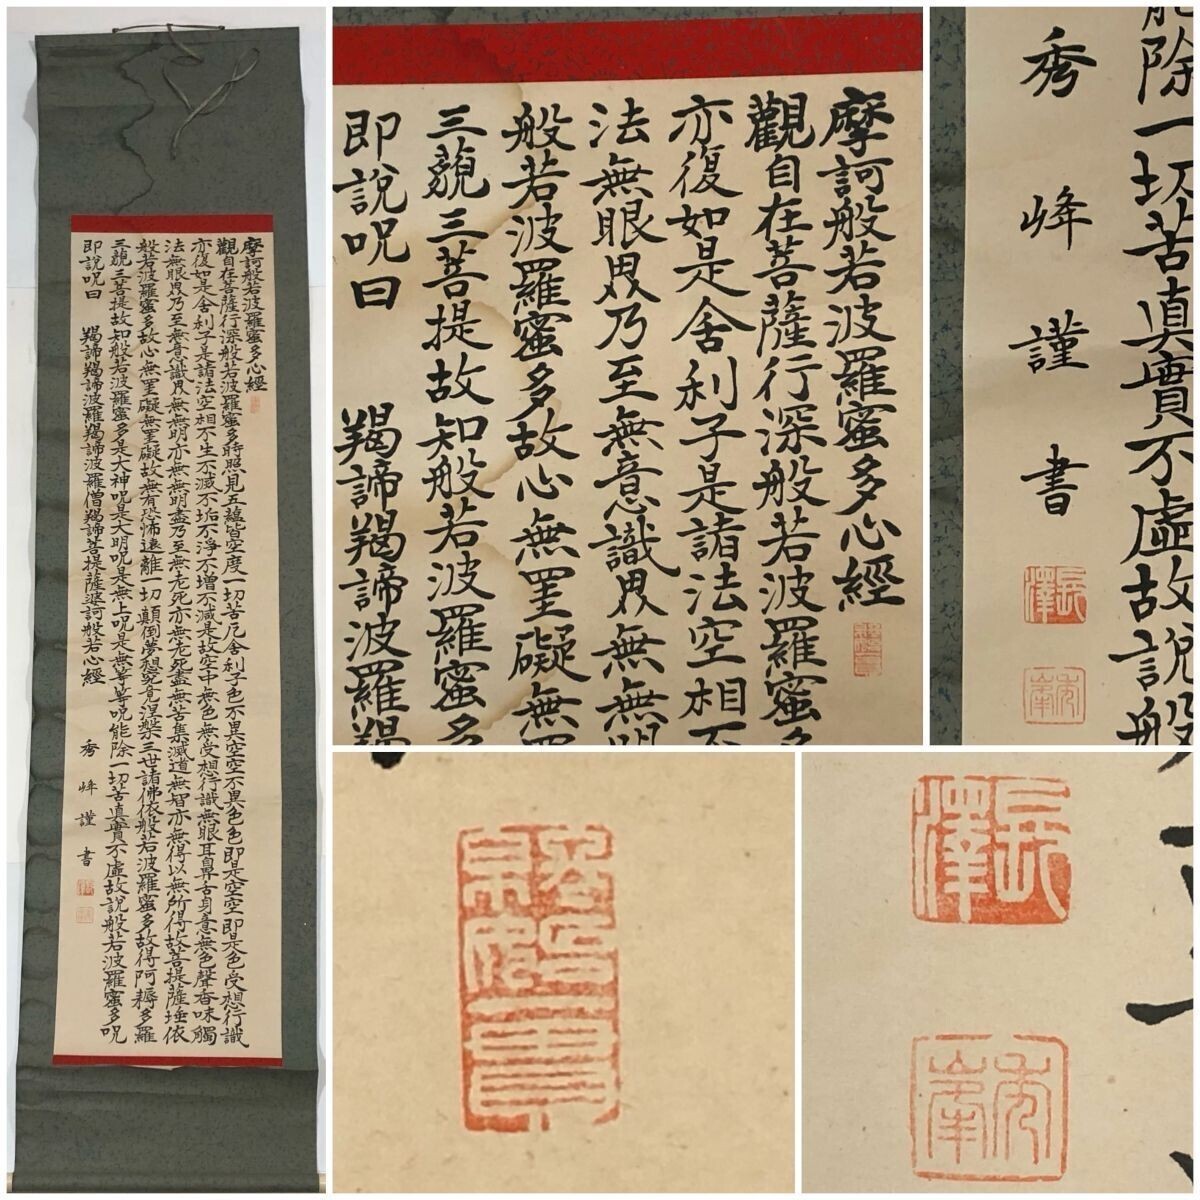 摩訶般若波羅蜜多心經
觀自在菩薩行深般若波羅蜜多時照見五蘊皆空度一切苦厄舍利子色不異空空不異色色即是空空即是色受想行識
亦復如是舍利子是諸法空相不生不滅不垢不淨不增不減是故空中無色無受想行識無眼耳鼻舌身意無色聲香味觸
法無眼界乃至無意識界無無明亦無無明盡乃至無老死亦無老死盡無苦集滅道無智亦無得以無所得故菩提薩埵依
般若波羅蜜多故心無罣礙無罣礙故無有恐怖遠離一切顛倒夢想究竟涅槃三世諸佛依般若波羅蜜多故得阿耨多羅
三藐三菩提故知般若波羅蜜多是大神呪是大明呪是無上呪是無等等呪能除一切苦眞實不虛故說般若波羅蜜多呪
即說呪曰 羯諦羯諦波羅羯諦波羅僧羯諦菩提薩婆訶般若心經
秀峰謹書
摩訶般若波羅蜜多心經
觀自在菩薩行深般若波羅蜜多
亦復如是舍利子是諸法空相不
法無眼界乃至無意識界無無明
般若波羅蜜多故心無罣礙無
三藐三菩提故知般若波羅蜜多
即說呪曰 羯諦羯諦波羅羯
能除一切苦眞實不虛故說般
秀峰謹書
長澤
秀峯
長澤
秀峯